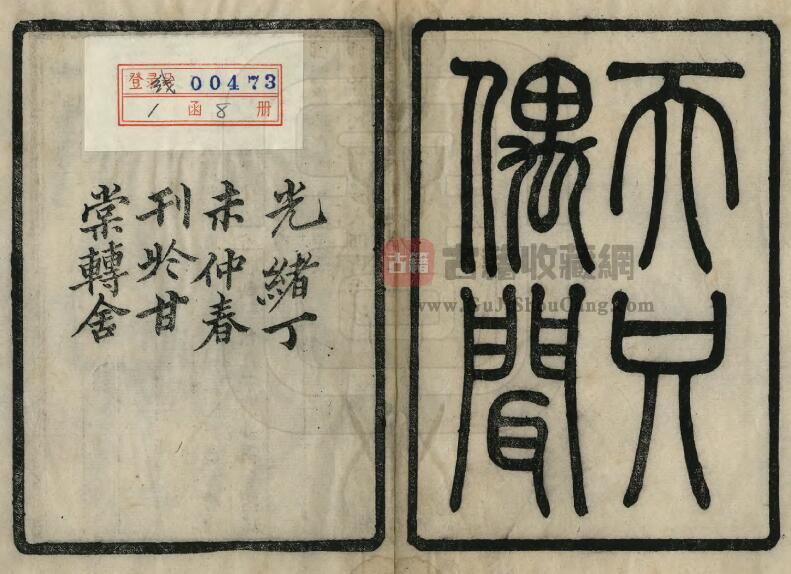 天只
偶聞
光緒丁
未仲春
刊於甘
棠轉舍
登录 线 00473
1 函 8 册
古籍
古籍收藏網
www.GuJiShouCang.com